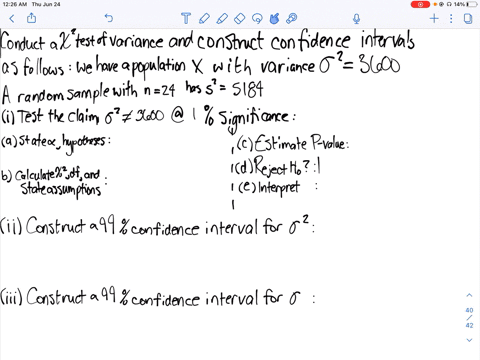 12:26 AM Thu Jun 24
14%
Conduct a χ² test of variance and construct confidence intervals
as follows: we have a population X with variance σ² = 3600
A random sample with n=24 has s² = 5184
(i) Test the claim σ² ≠ 3600 @ 1% Significance:
(a) State α, hypotheses:
b) Calculate χ², df, and
State assumptions :
(c) Estimate P-value:
(d) Reject H₀? :
(e) Interpret :
(ii) Construct a 99% confidence interval for σ² :
(iii) Construct a 99% confidence interval for σ :
40
/
42